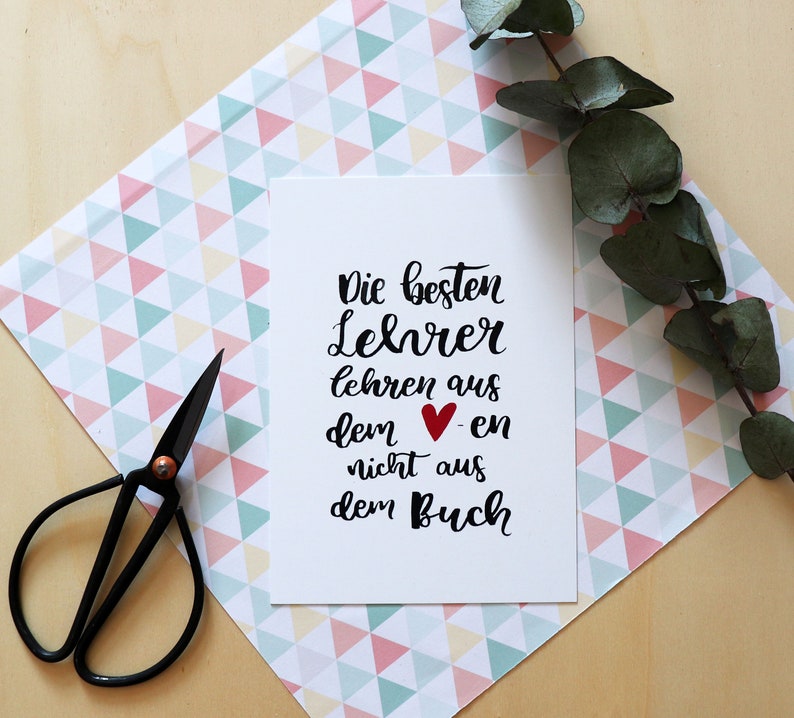 Die besten
Lehrer
lehren aus
dem ♥-en
nicht aus
dem Buch